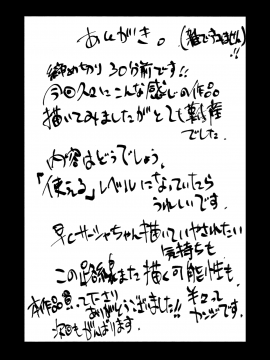 あとがき。(雑ですみません)!!
締め切り30分前です!!
今回久々にこんな感じの作品
描いてみましたがとても新鮮
でした。
内容はどうでしょう、
「使える」レベルになっていたら
うれしいです。
早くサーシャちゃん描いていやされたい
気持ちも
この路線また描く可能性も
半々って
カンジです。
本作品買って下さり
ありがとうございました!!
次回もがんばります。